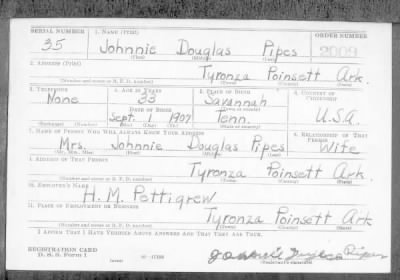 SERIAL NUMBER 1. NAME (Print) ORDER NUMBER
35 Johnnie Douglas Pipes 2009
(First) (Middle) (Last)
2. ADDRESS (Print)
Tyronza Poinsett Ark.
(Number and street or R. F. D. number) (Town) (County) (State)
3. TELEPHONE 4. AGE IN YEARS 5. PLACE OF BIRTH 6. COUNTRY OF CITIZENSHIP
None 33 Savannah
DATE OF BIRTH
Sept. 1 1907 Tenn. U.S.A.
(Mo.) (Day) (Yr.)
7. NAME OF PERSON WHO WILL ALWAYS KNOW YOUR ADDRESS 8. RELATIONSHIP OF THAT PERSON
Mrs. Johnnie Douglas Pipes Wife
(Mr., Mrs., Miss) (First) (Middle) (Last)
9. ADDRESS OF THAT PERSON
Tyronza Poinsett Ark.
(Number and street or R. F. D. number) (Town) (County) (State)
10. EMPLOYER'S NAME
H. M. Pettigrew
11. PLACE OF EMPLOYMENT OR BUSINESS
Tyronza Poinsett Ark.
(Number and street or R. F. D. number) (Town) (County) (State)
I AFFIRM THAT I HAVE VERIFIED ABOVE ANSWERS AND THAT THEY ARE TRUE.
REGISTRATION CARD
D. S. S. Form 1 (over) Pipes
(Registrant's signature)